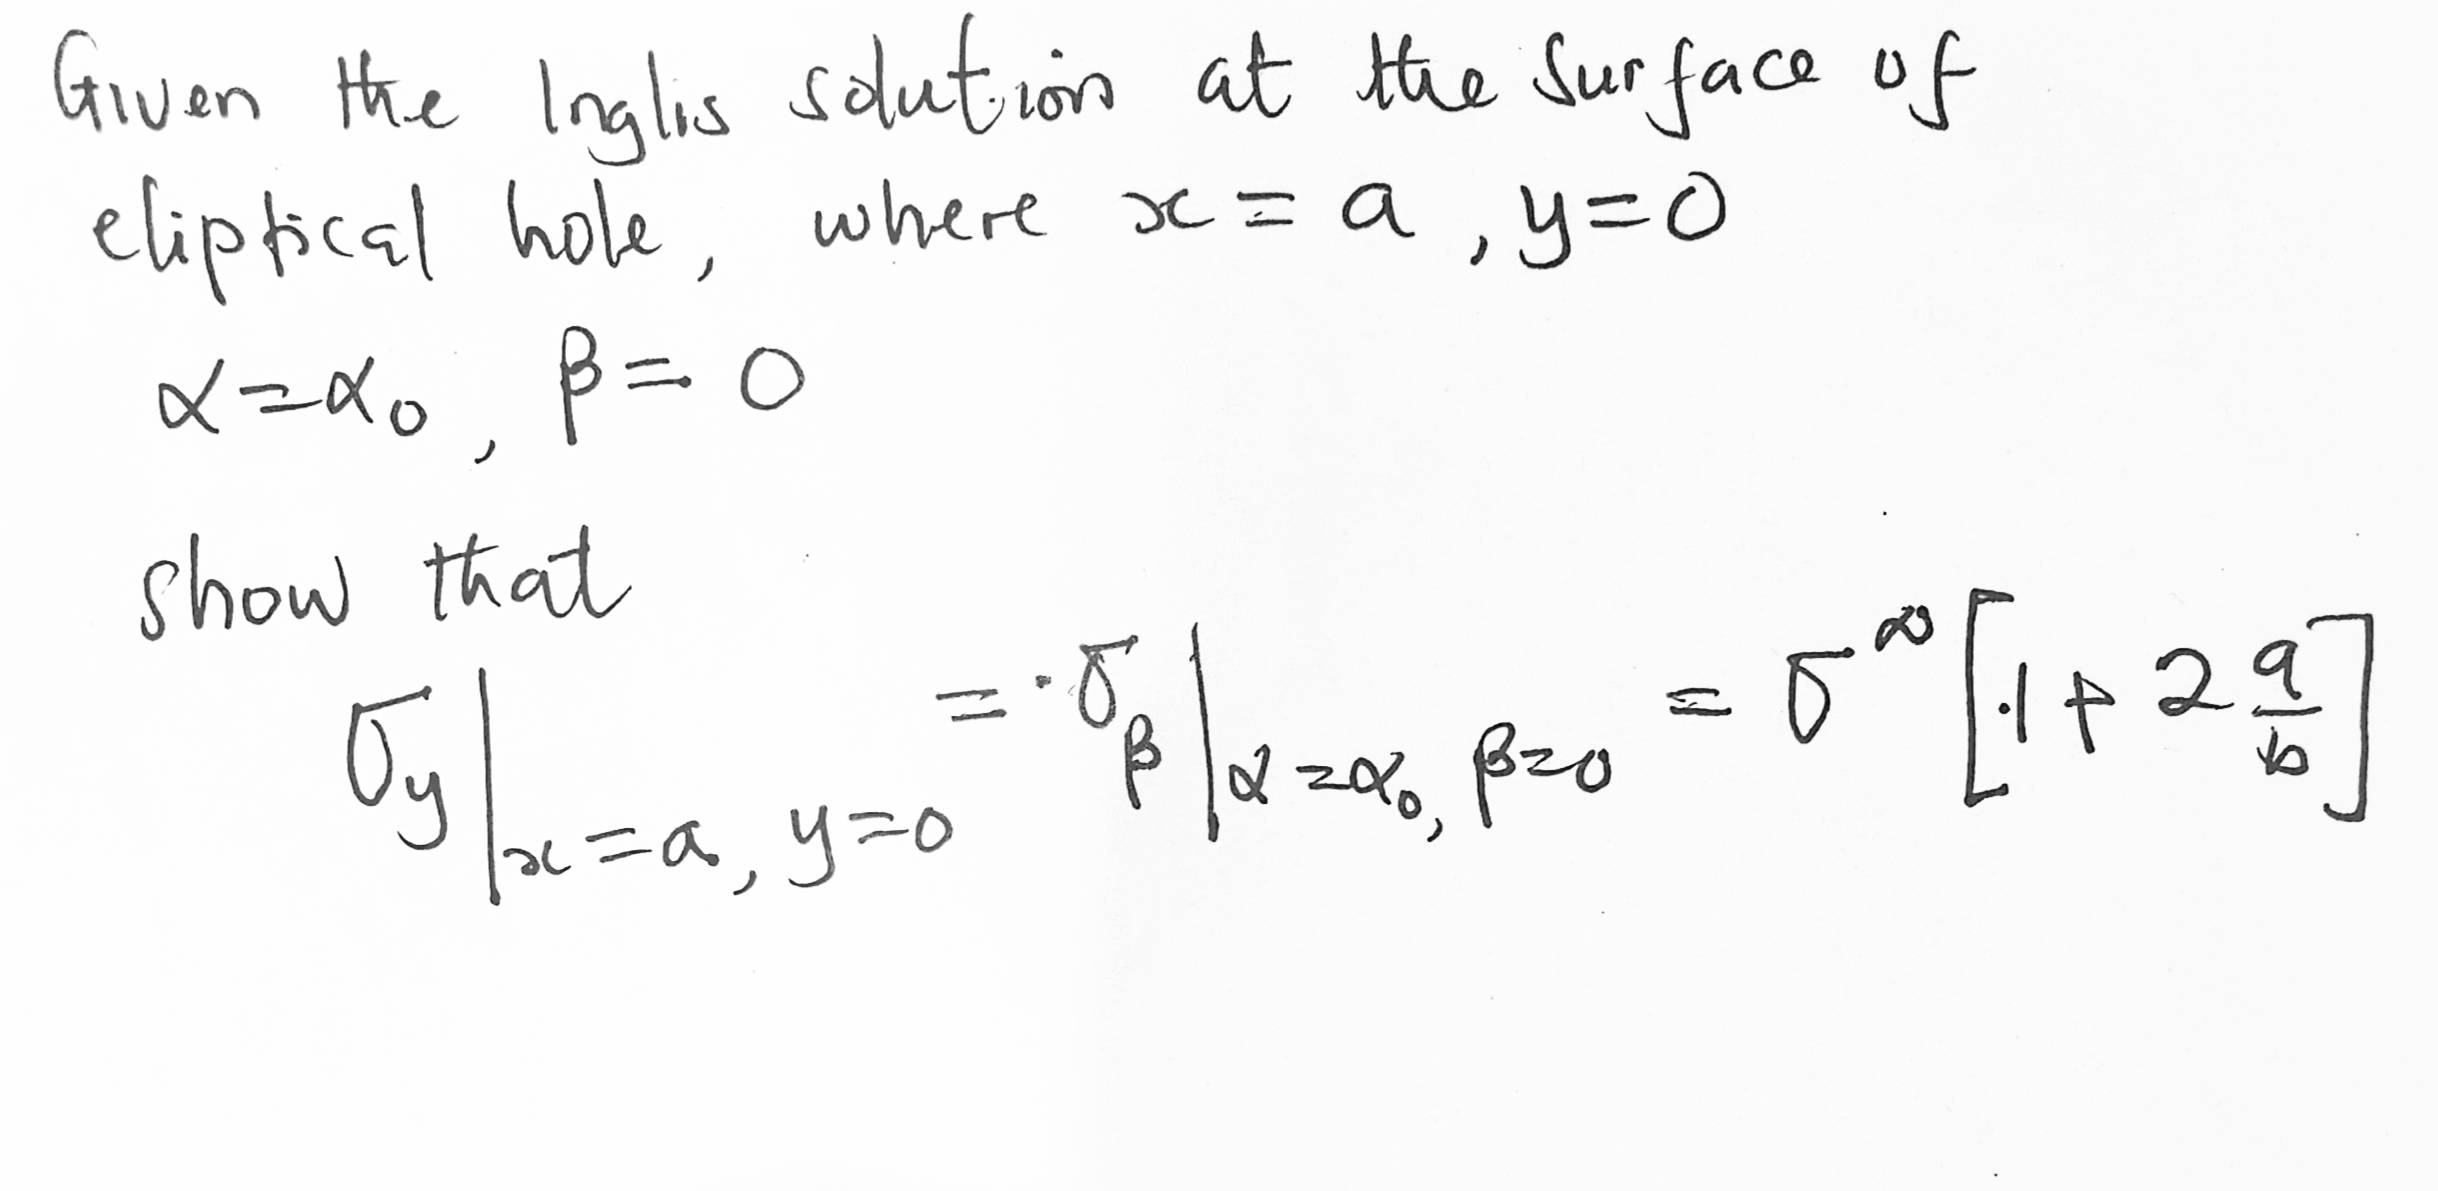 Given the Inglis solution at the surface of
eliptical hole, where x = a, y=0
α=α₀, β=0
show that
σ_y|_{x=a, y=0} = σ_β|_{α=α₀, β=0} = σ^∞ [1 + 2 a/b]